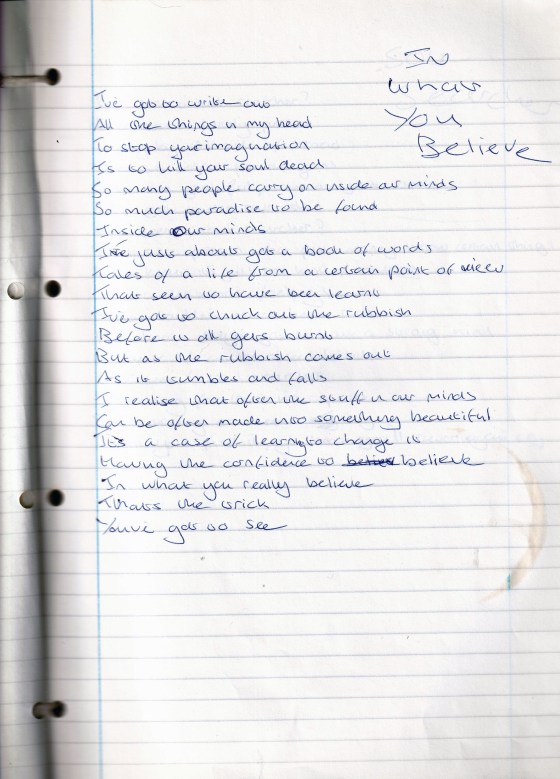 In
what
You
Believe
I've got to write out
All the things in my head
To stop your imagination
Is to kill your soul dead
So many people carry on inside our minds
So much paradise to be found
Inside Our minds
I've just about got a book of words
Tales of a life from a certain point of view
That seem to have been learnt
I've got to chuck out the rubbish
Before it all gets burnt
But as the rubbish comes out
As it tumbles and falls
I realise that often the stuff in our minds
Can be often made into something beautiful
It's a case of learning to change it
Having the confidence to believe
In what you really believe
That's the trick
You've got to see